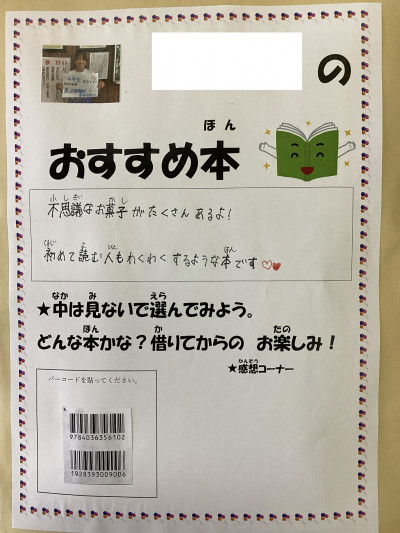 の
おすすめ本
不思議なお菓子がたくさんあるよ！
初めて読む人もわくわくするような本です♡♥
★中は見ないで選んでみよう。
どんな本かな？借りてからの お楽しみ！
★感想コーナー
バーコードを貼ってください。
9784036356102
1928393009006